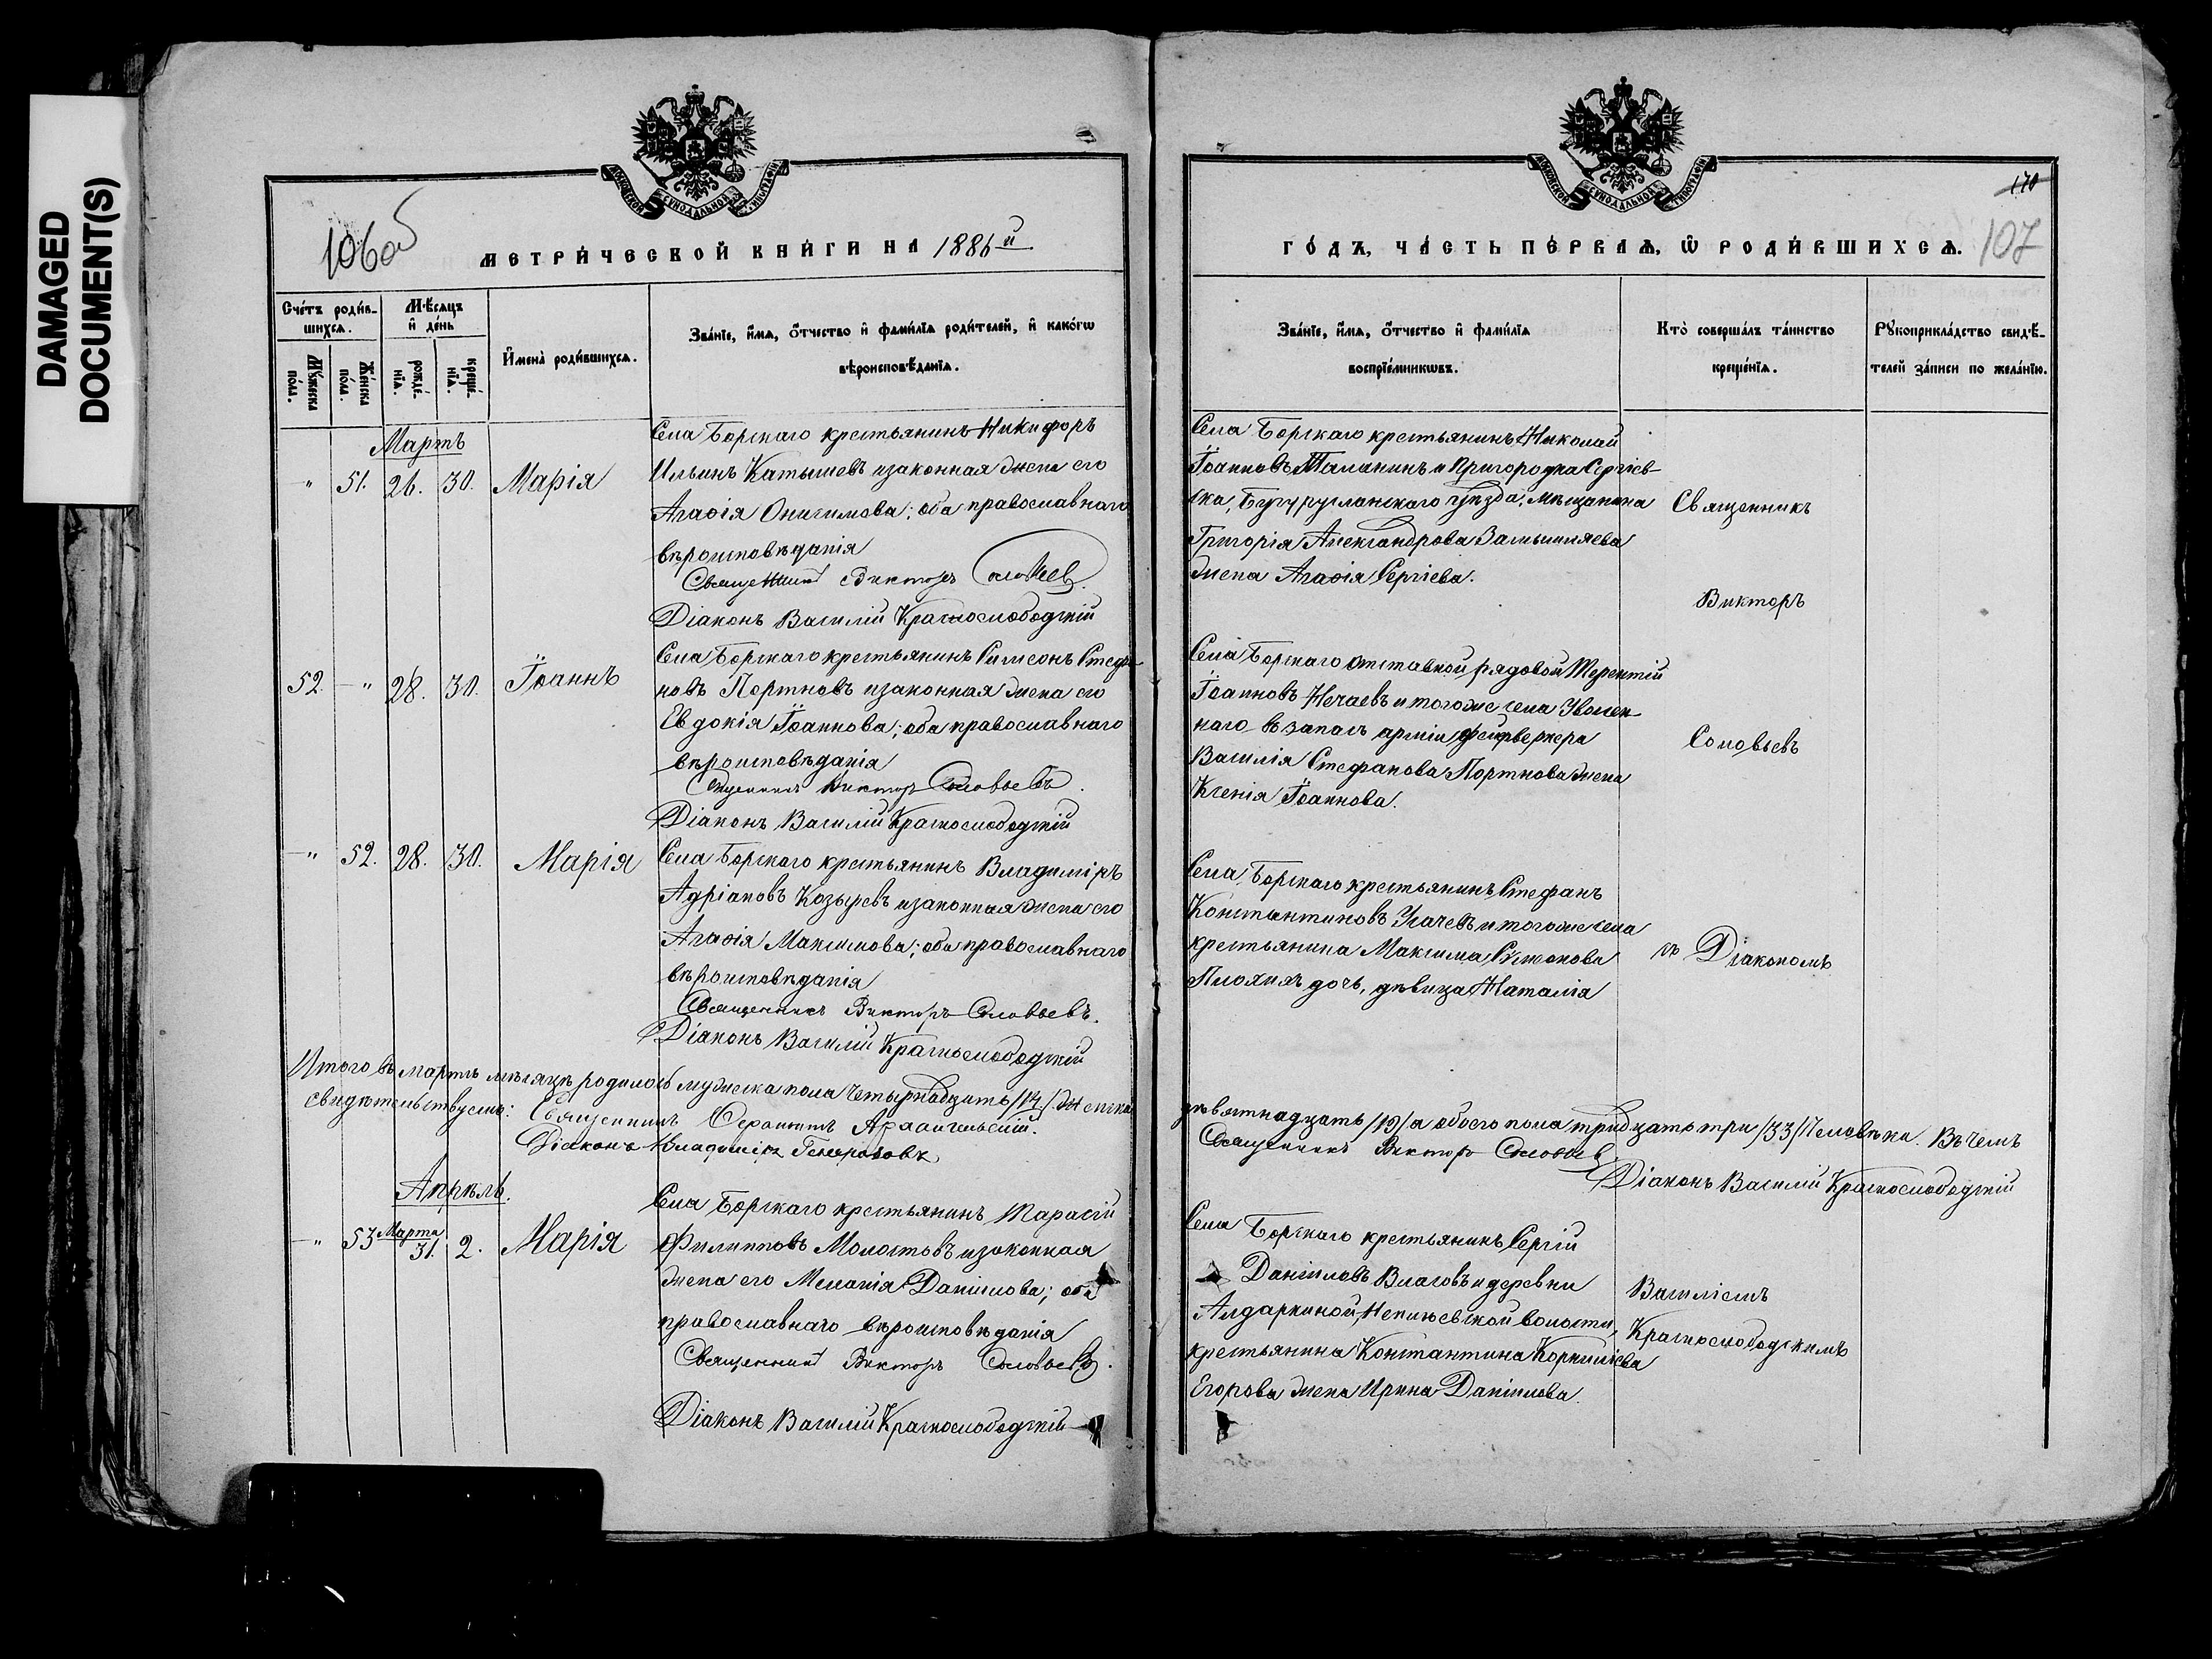 DAMAGED
DOCUMENT(S)
106об
МЕТРИ́ЧЕСКОЙ КНИ́ГИ НА 1886й
Сче́тъ роди́в-
шихся.
Мѣ́сяцъ
и҆ де́нь
Мꙋ́жеска по́ла.
Же́нска по́ла.
рожде́-
нїя.
креще́-
нїя.
И҆мена̀ роди́вшихся.
Зва́нїе, и҆́мя, ѻ҆́тчество и҆ фами́лїя роди́телей, и҆ како́гѡ
вѣроисповѣ́данїя.
Мартъ
" 51. 26. 30. Марія
Села Борскаго крестьянинъ Никифоръ
Ильинъ Катышевъ изаконная жена его
Агаѳія Онисимова; оба православнаго
вѣроисповѣданія
Священникъ Викторъ Соловьев
Діаконъ Василій Краснослободскій
52. — " 28. 30. Іоаннъ
Села Борскаго крестьянинъ Симеонъ Стефа-
новъ Портновъ изаконная жена его
Евдокія Іоаннова; оба православнаго
вѣроисповѣданія
Священникъ Викторъ Соловьевъ.
Діаконъ Василій Краснослободскій
— " 52. 28. 30. Марія
Села Борскаго крестьянинъ Владиміръ
Адріановъ Козыревъ изаконная жена его
Агаѳія Максимова; оба православнаго
вѣроисповѣданія
Священникъ Викторъ Соловьевъ.
Діаконъ Василій Краснослободскій
Итого въ мартѣ мѣсяцѣ родилось мужеска пола четырнадцать /14/. Женска
свидѣтельствуемъ: Священникъ Архангельскій.
Діаконъ Владиміръ
Апрѣль.
— " 53 Марта 31. 2. Марія
Села Борскаго крестьянинъ Тарасій
Филипповъ Молостовъ изаконная
жена его Меланія Даніилова; оба
православнаго вѣроисповѣданія
Священникъ Викторъ Соловьевъ.
Діаконъ Василій Краснослободскій
170
107
ГО́ДЪ, ЧА́СТЬ ПЕ́РВАЯ, Ѡ҆ РОДИ́ВШИХСЯ.
Зва́нїе, и҆́мя, ѻ҆́тчество и҆ фами́лїя
воспрїе́мникѡвъ.
Кто̀ соверша́лъ та́инство
креще́нїя.
Рꙋкоприкла́дство свидѣ́-
телей за́писи по жела́нїю.
Села Борскаго крестьянинъ Николай
Іоанновъ Таланинъ и Пригородка Сергіев-
ска, Бугурусланскаго уѣзда, мѣщанина
Григорія Александрова
жена Агаѳія Сергіева.
Села Борскаго отставной рядовой Терентій
Іоанновъ Нечаевъ и тогоже села Уволен-
наго въ запасъ арміи фейерверкера
Василія Стефанова Портнова жена
Ксенія Іоаннова.
Села Борскаго крестьянинъ Стефанъ
Константиновъ Усачевъ и тогоже села
крестьянина Максима
дочь, дѣвица Наталія
Священникъ
Викторъ
Соловьевъ
съ Діакономъ
Василіемъ
Краснослободскимъ
девятнадцать /19/ а обоего пола тридцать три /33/ Человѣка. Въ чемъ
Священникъ Викторъ Соловьев
Діаконъ Василій Краснослободскій
Села Борскаго крестьянинъ Сергій
Даніиловъ Власовъ и деревни
Алдаркиной, Неплюевской волости,
крестьянина Константина Корнилієва
Егорова жена Ирина Даніилова.